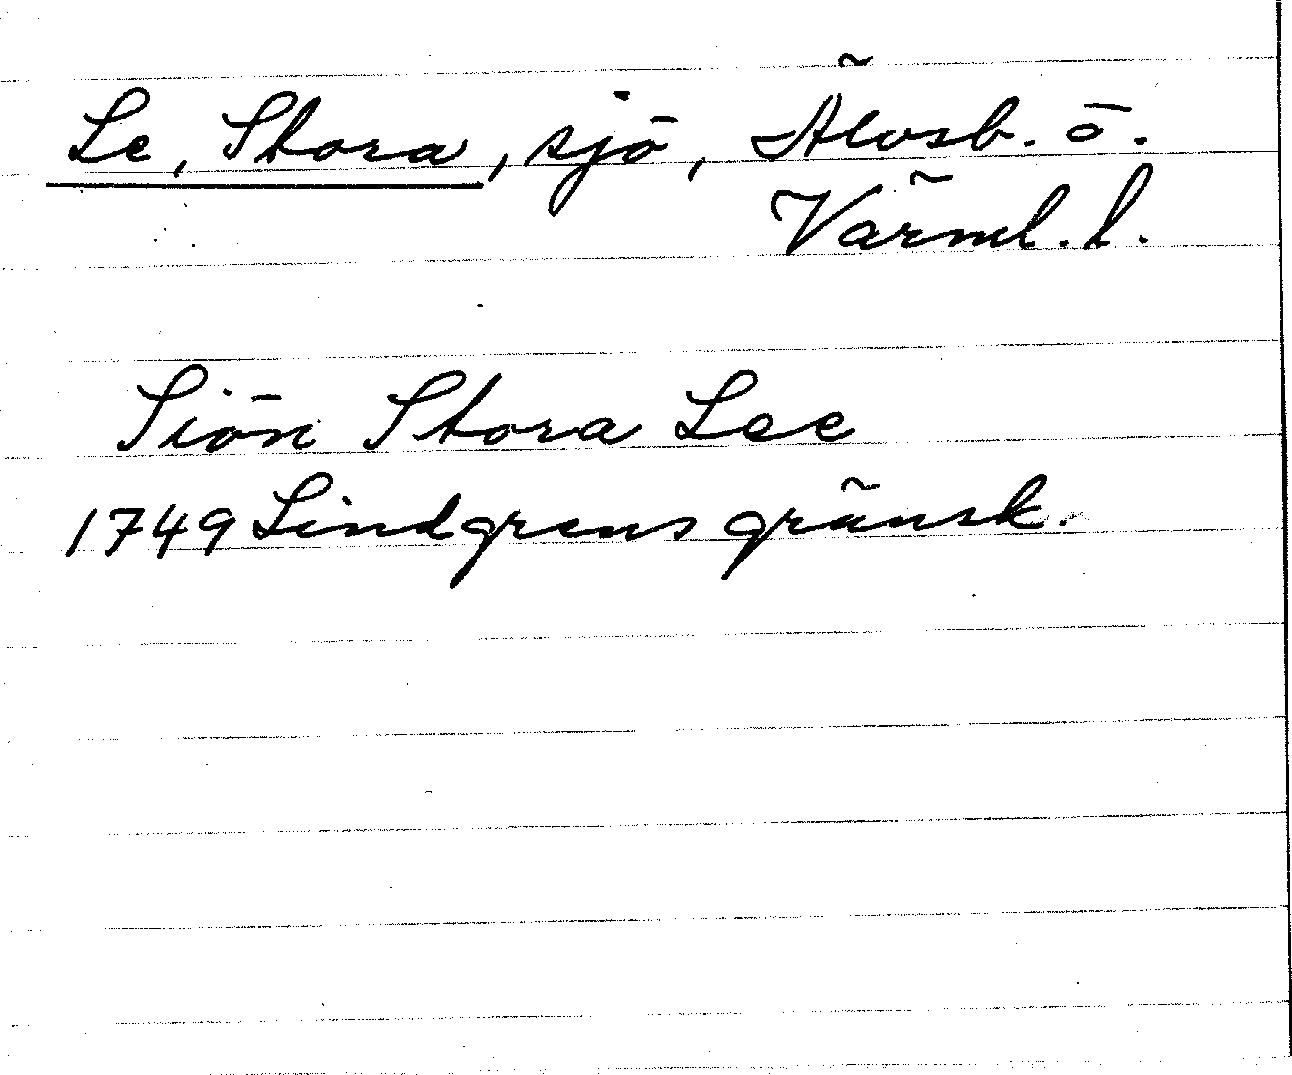 Le, Stora, sjö, Älvsb. ö.
Värml. l.
Siön Stora Lee
1749 Lindgrens gränsk.